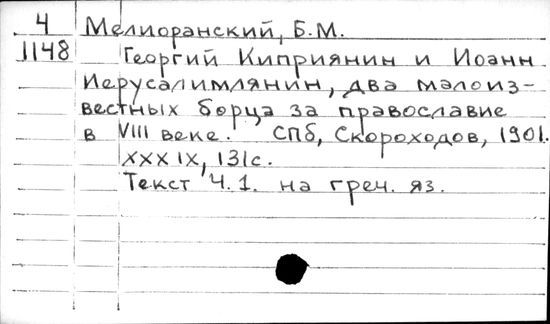 4 Мелиоранский, Б.М.
1148 Георгий Киприянин и Иоанн
Иерусалимлянин, два малоиз-
вестных борца за православие
в VIII веке. СПб, Скороходов, 1901.
XXXIX, 131с.
Текст Ч.1. на греч. яз.